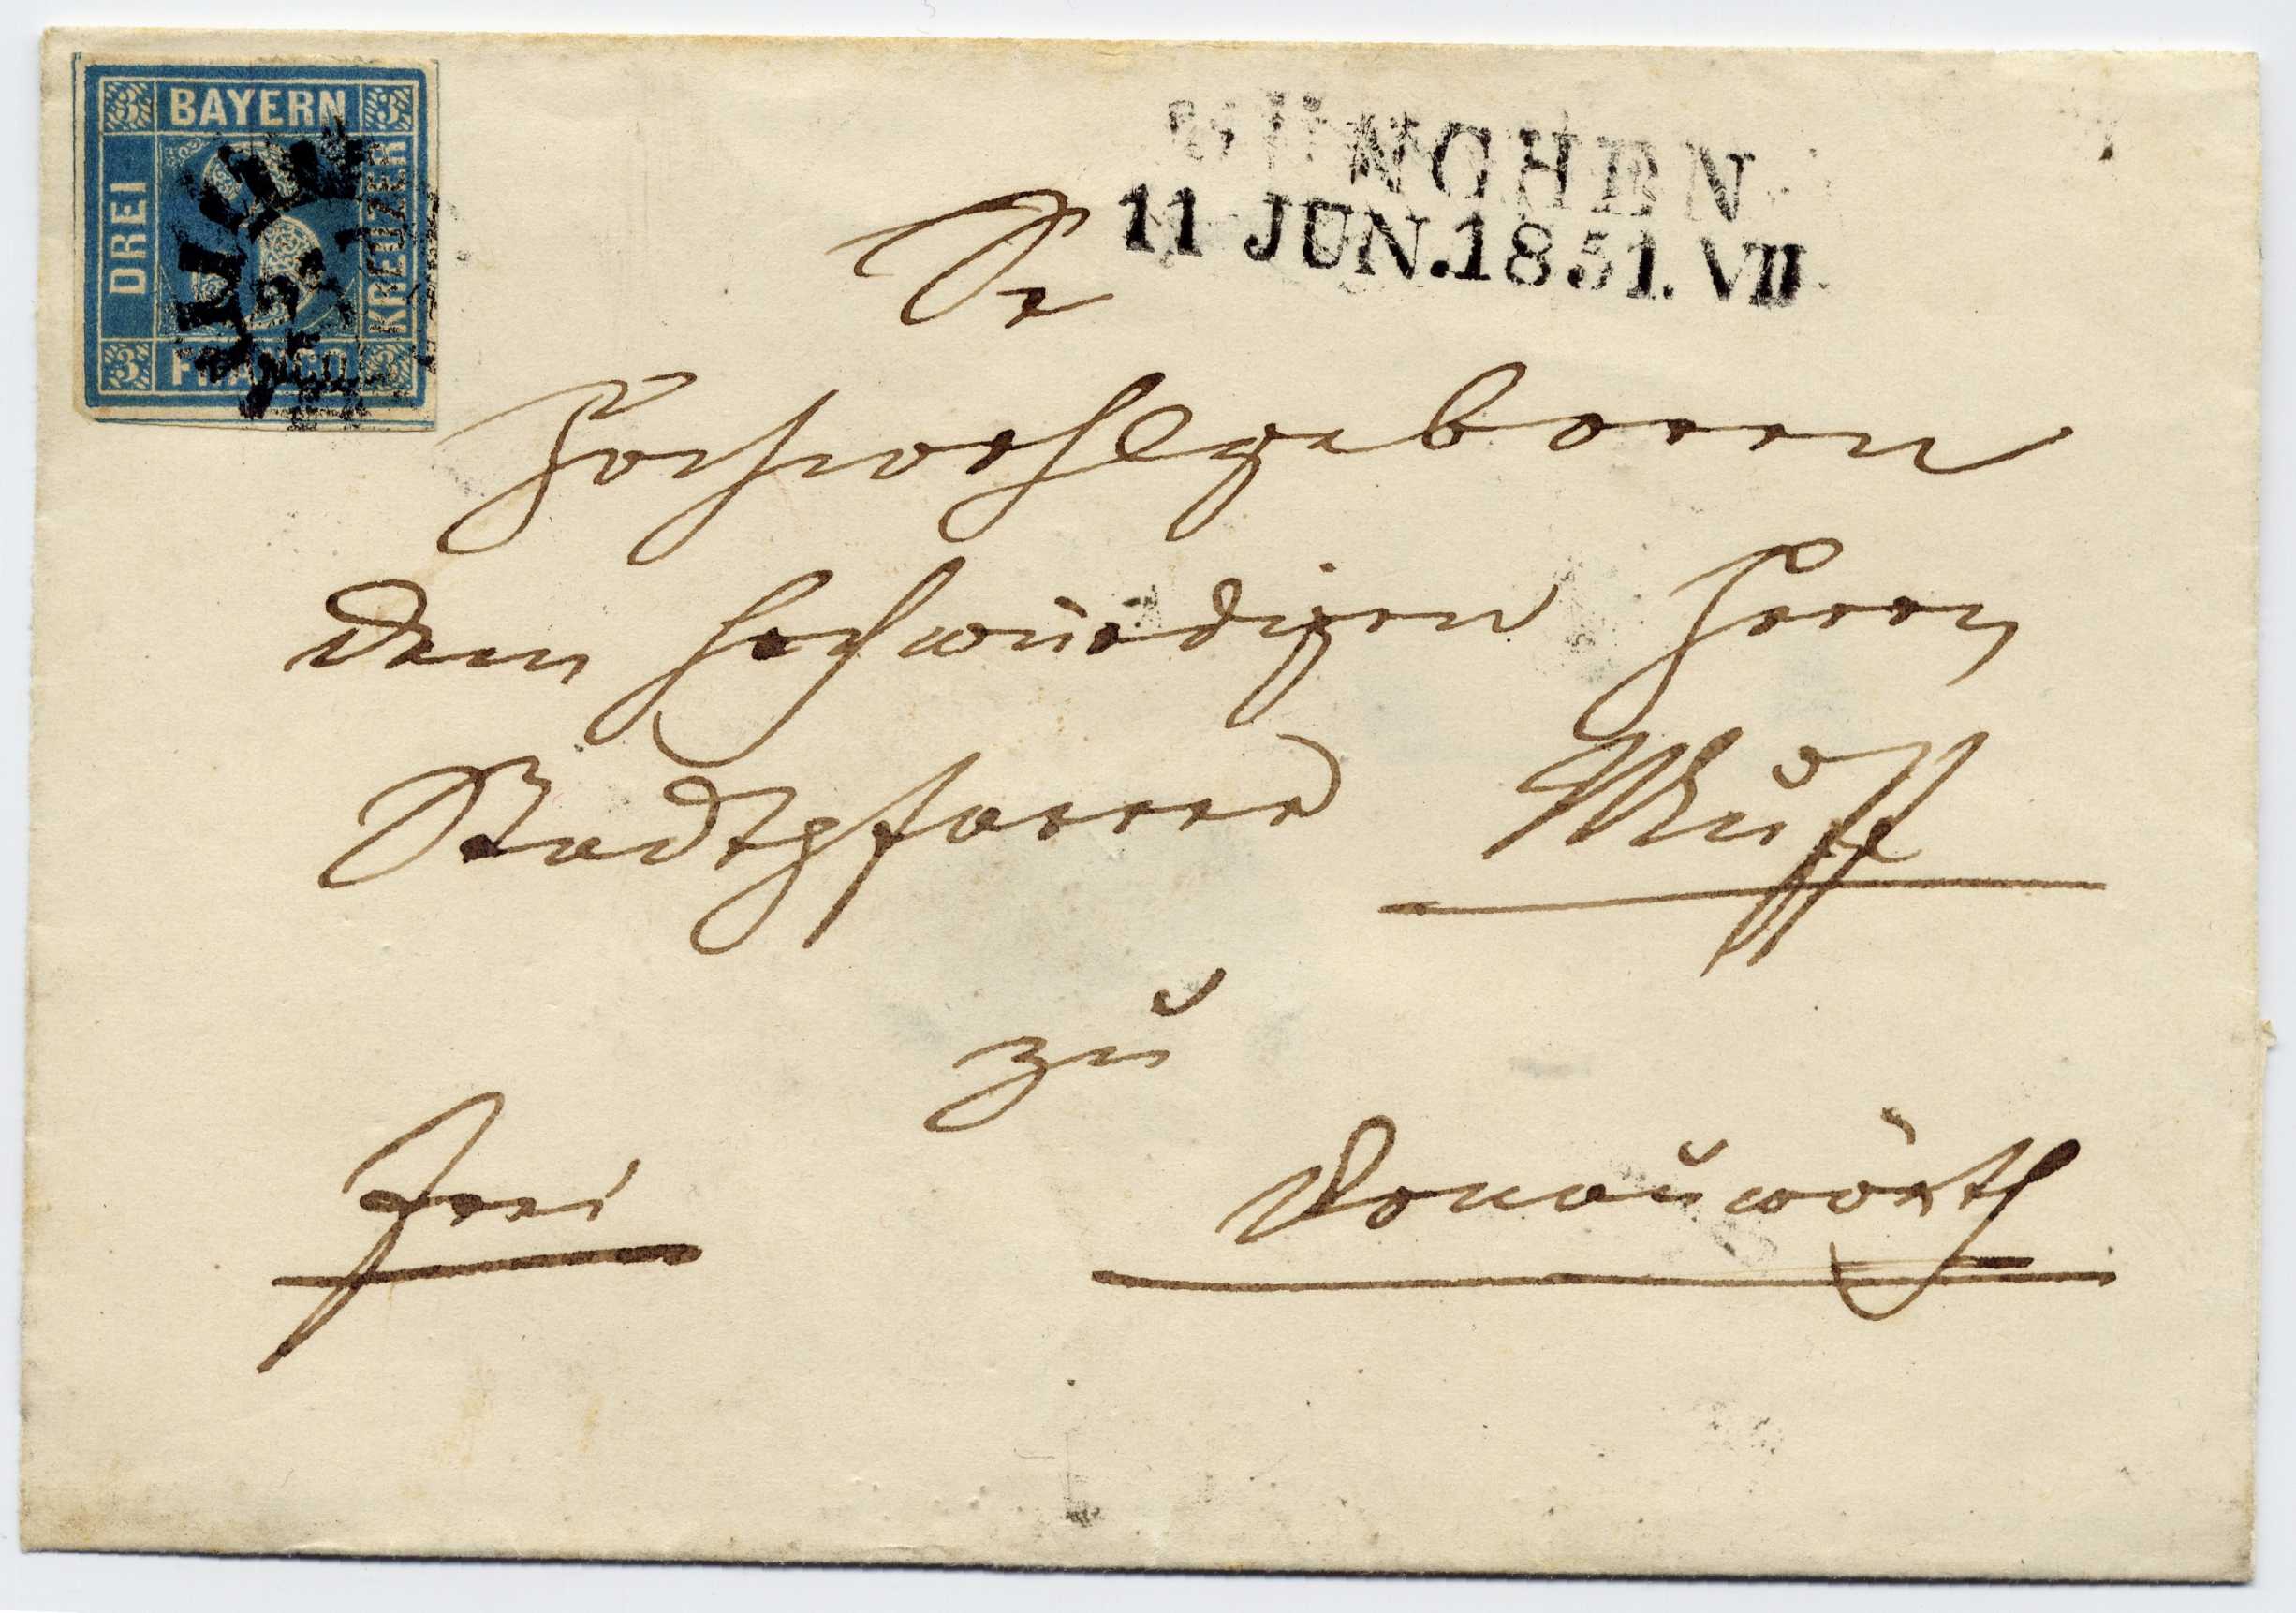 3 BAYERN 3
DREI
KREUZER
3 FRANCO 3
MÜNCHEN
11 JUN.1851. VII
Sr
Hochwohlgeboren
dem hochwürdigen Herrn
Stadtpfarrer Muff
zu
frei
Donauwörth